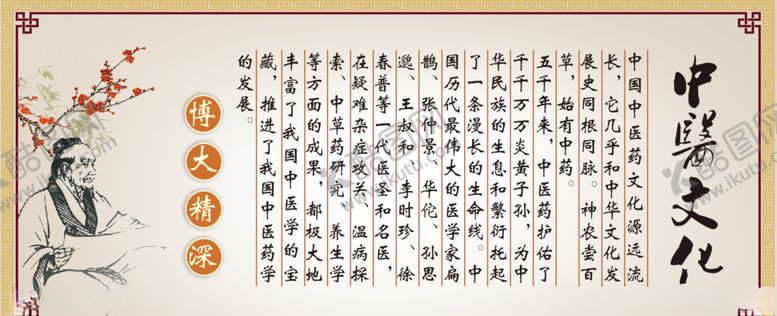 中醫文化
中国中医药文化源远流
长，它几乎和中华文化发
展史同根同脉。神农尝百
草，始有中药。
五千年来，中医药护佑了
千千万万炎黄子孙，为中
华民族的生息和繁衍托起
了一条漫长的生命线。中
国历代最伟大的医学家扁
鹊、张仲景、华佗、孙思
邈、王叔和、李时珍、徐
春普等一代医圣和名医，
在疑难杂症攻关、温病探
索、中草药研究、养生学
等方面的成果，都极大地
丰富了我国中医学的宝
藏，推进了我国中医药学
的发展。
博大精深